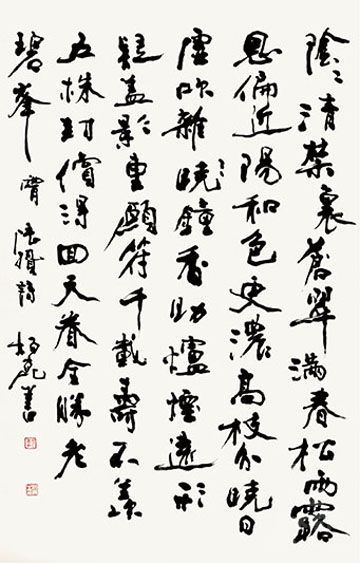 陰〻清禁裏蒼翠滿春松雨露
恩偏近陽和色更濃高枝分曉日
虛吹雜曉鐘香助爐煙遠形
疑蓋影重願符千載壽不羨
五株封償得回天眷全勝老
碧峯 唐 陸贄詩 書